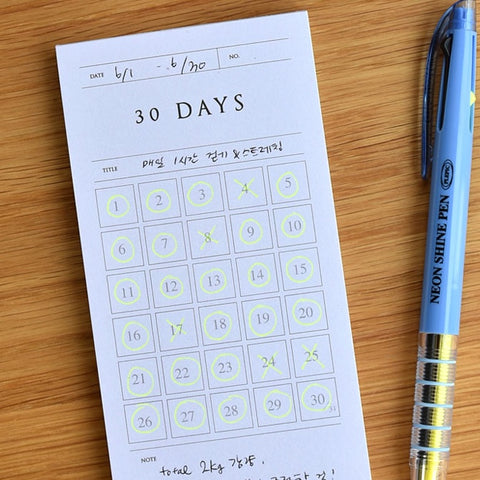 DATE 9/1 - 9/30 NO.
30 DAYS
TITLE 매일 1시간 걷기 & 스트레칭
1 2 3 4 5
6 7 8 9 10
11 12 13 14 15
16 17 18 19 20
21 22 23 24 25
26 27 28 29 30 31
NOTE
total 2kg 감량!
NEON SHINE PEN